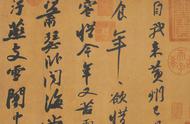 自我來黃州已
食年〻欲惜
容惜今年又苦
蕭瑟卧聞海
燕支雪闇中